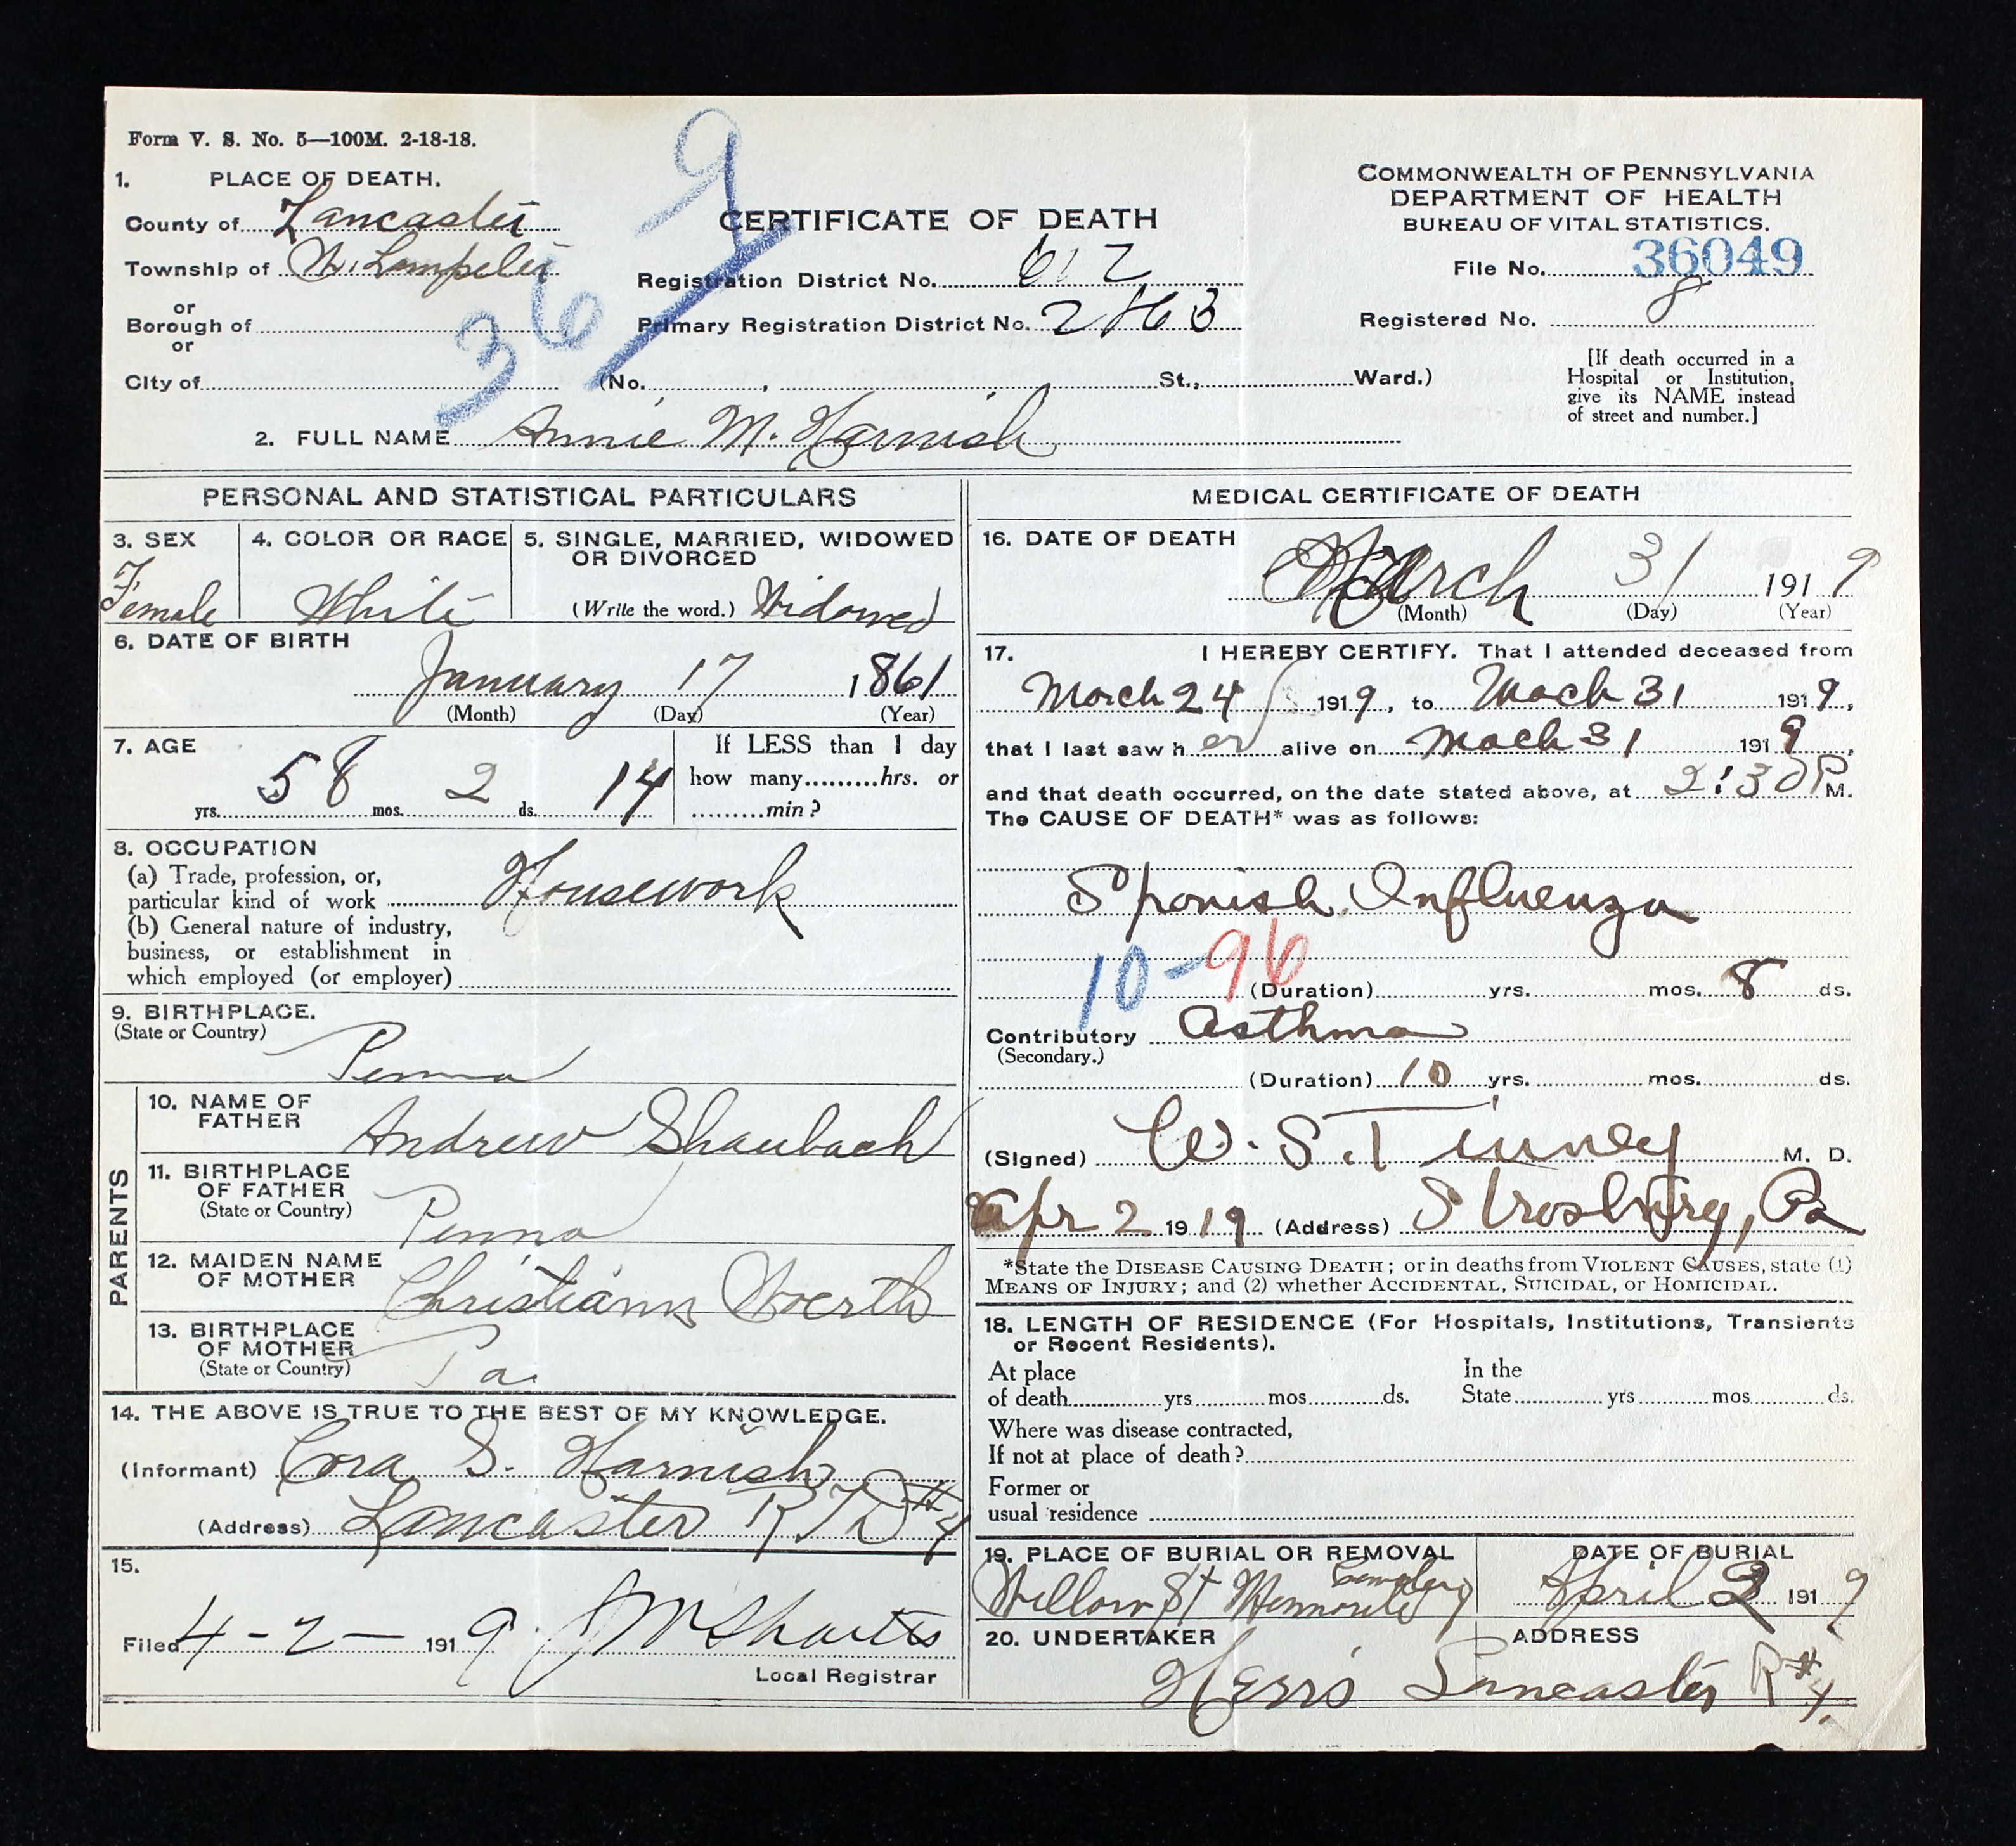 Form V. S. No. 5—100M. 2-18-18.
1. PLACE OF DEATH.
County of Lancaster
Township of W. Lampeter
or
Borough of
or
City of
369
CERTIFICATE OF DEATH
Registration District No. 612
Primary Registration District No. 2863
(No. , St., Ward.)
COMMONWEALTH OF PENNSYLVANIA
DEPARTMENT OF HEALTH
BUREAU OF VITAL STATISTICS.
File No. 36049
Registered No. 8
[If death occurred in a
Hospital or Institution,
give its NAME instead
of street and number.]
2. FULL NAME Annie M. Harnish
PERSONAL AND STATISTICAL PARTICULARS
3. SEX
Female
4. COLOR OR RACE
White
5. SINGLE, MARRIED, WIDOWED
OR DIVORCED
(Write the word.) Widowed
6. DATE OF BIRTH
January 17 1861
(Month) (Day) (Year)
7. AGE
58 yrs. 2 mos. 14 ds.
If LESS than 1 day
how many.........hrs. or
.........min ?
8. OCCUPATION
(a) Trade, profession, or,
particular kind of work Housework
(b) General nature of industry,
business, or establishment in
which employed (or employer)
9. BIRTHPLACE.
(State or Country)
Penna
PARENTS
10. NAME OF
FATHER
Andrew Shaubach
11. BIRTHPLACE
OF FATHER
(State or Country)
Penna
12. MAIDEN NAME
OF MOTHER
Christiann
13. BIRTHPLACE
OF MOTHER
(State or Country)
Pa.
14. THE ABOVE IS TRUE TO THE BEST OF MY KNOWLEDGE.
(Informant) Cora S. Harnish
(Address) Lancaster RFD #4
15.
Filed 4-2- 1919.
Local Registrar
MEDICAL CERTIFICATE OF DEATH
16. DATE OF DEATH
March 31 1919
(Month) (Day) (Year)
17. I HEREBY CERTIFY. That I attended deceased from
March 24 1919, to Mach 31 1919,
that I last saw her alive on Mach 31 1919,
and that death occurred, on the date stated above, at 2:30 P M.
The CAUSE OF DEATH* was as follows:
Spanish Influenza
10-96
(Duration) yrs. mos. 8 ds.
Contributory Asthma
(Secondary.)
(Duration) 10 yrs. mos. ds.
(Signed) W. S. Tinney M. D.
Apr 2 1919 (Address) Strasburg, Pa
*State the DISEASE CAUSING DEATH; or in deaths from VIOLENT CAUSES, state (1)
MEANS OF INJURY; and (2) whether ACCIDENTAL, SUICIDAL, or HOMICIDAL.
18. LENGTH OF RESIDENCE (For Hospitals, Institutions, Transients
or Recent Residents).
At place
of death yrs mos ds.
In the
State yrs mos ds.
Where was disease contracted,
If not at place of death?
Former or
usual residence
19. PLACE OF BURIAL OR REMOVAL
Willow St Mennonite Cemetery
DATE OF BURIAL
April 2 1919
20. UNDERTAKER
ADDRESS
Herrs Lancaster R #4.